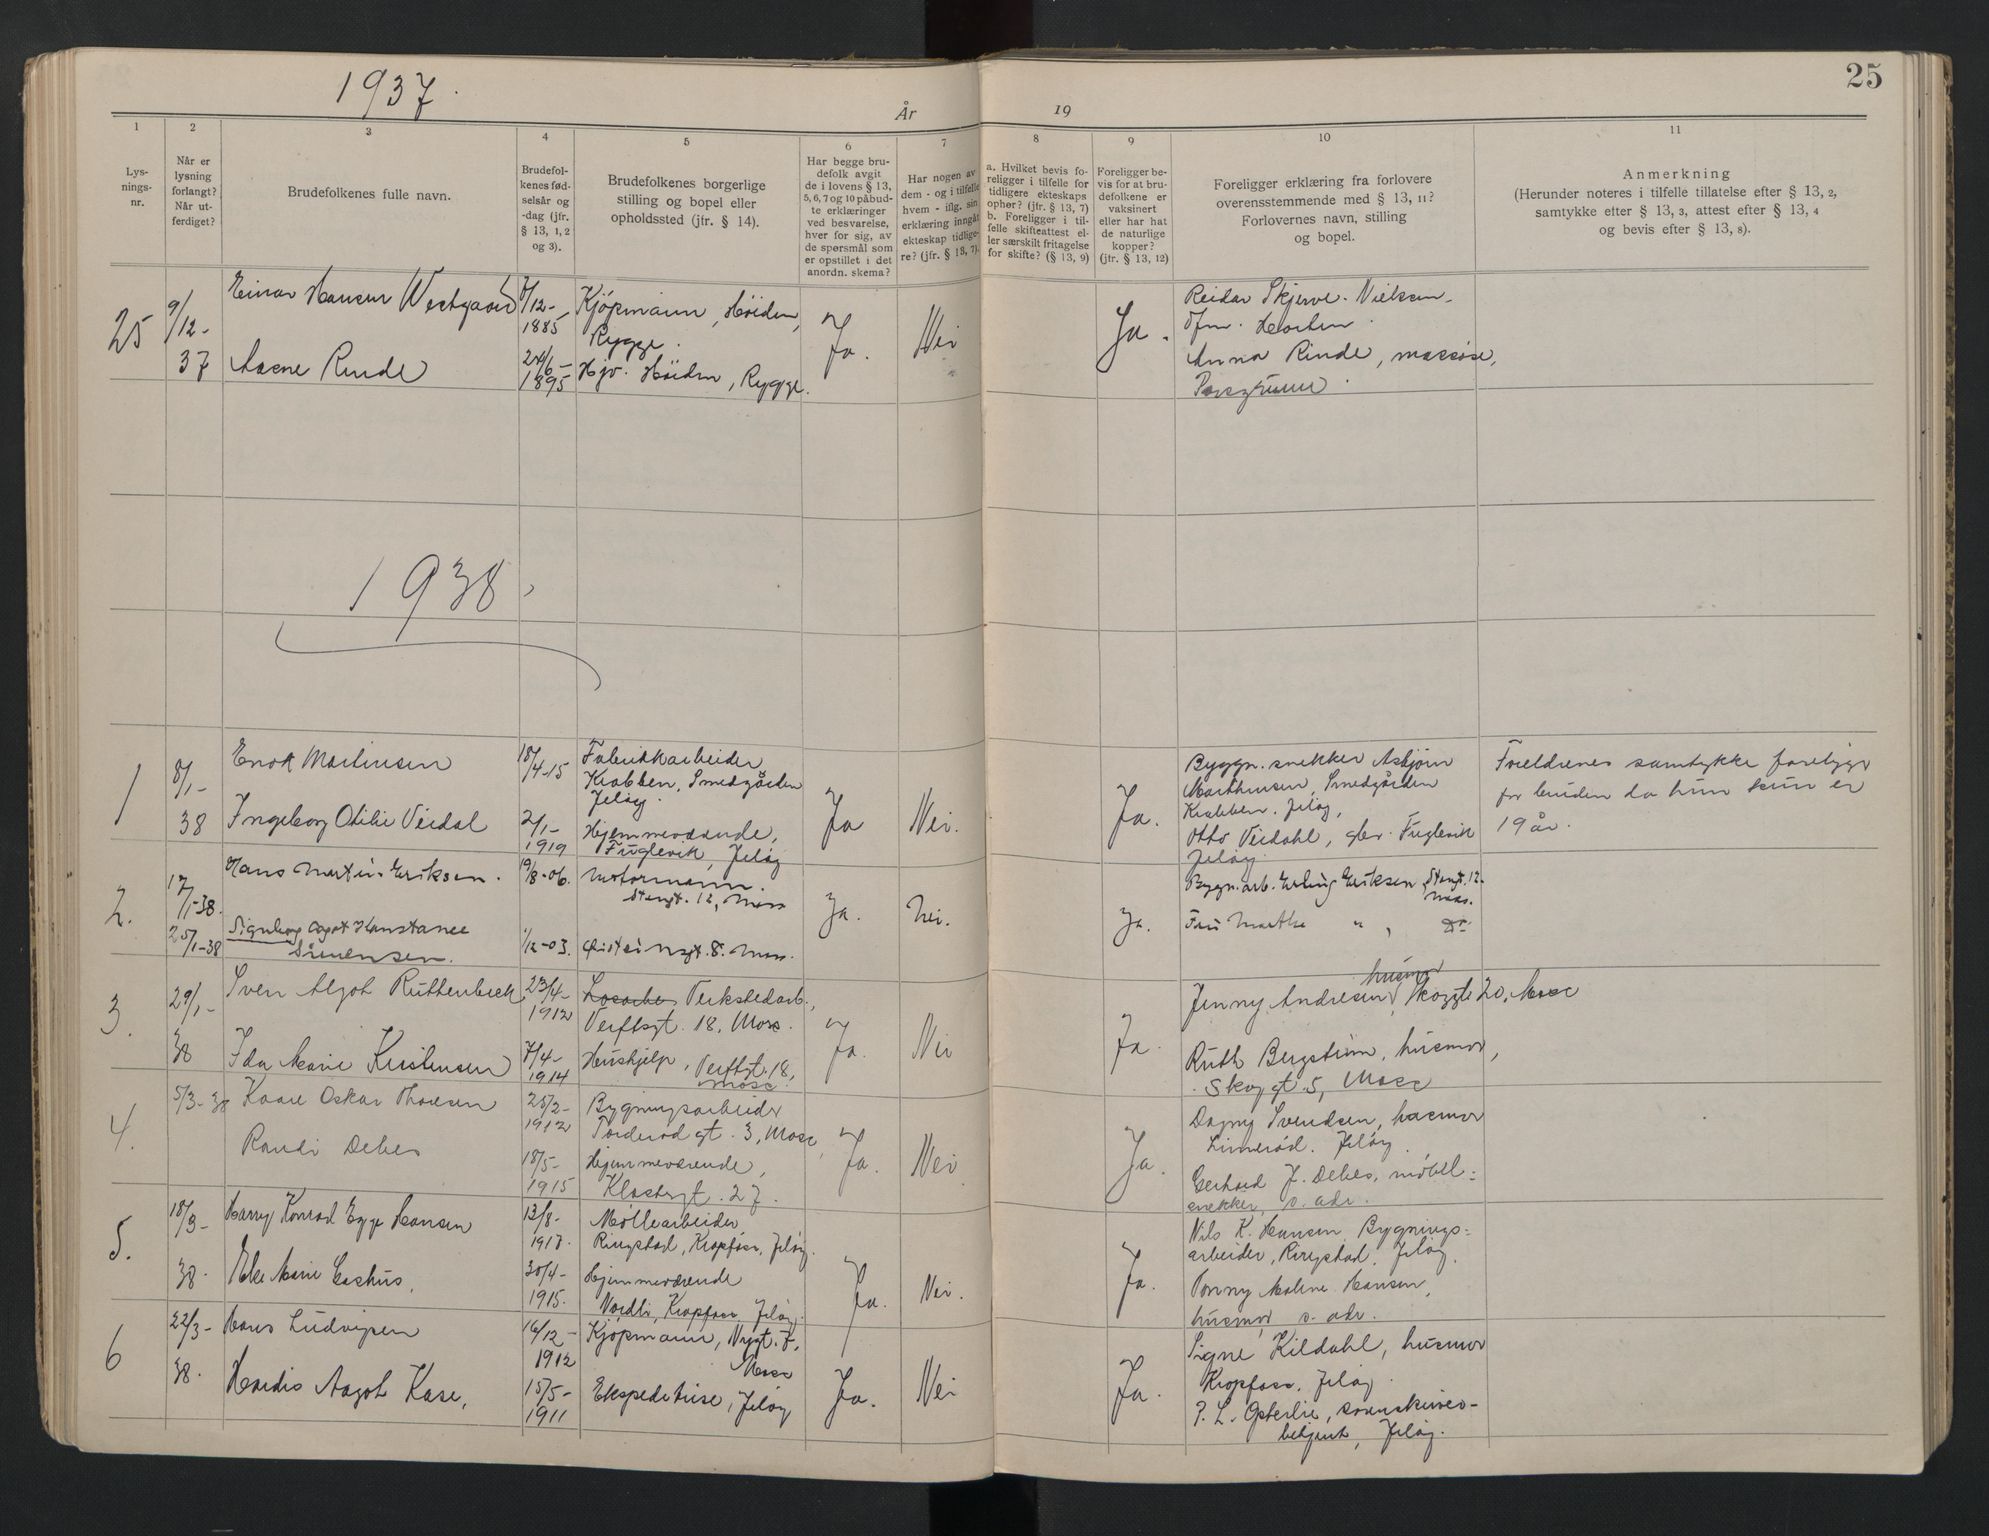 1937.
År
19
25
1
2
3
4
5
6
7
8
9
10
11
Lys-
nings-
nr.
Når er
lysning
forlangt?
Når ut-
ferdiget?
Brudefolkenes fulle navn.
Brudefol-
kenes fød-
selsår og
-dag (jfr.
§ 13, 1, 2
og 3).
Brudefolkenes borgerlige
stilling og bopel eller
opholdssted (jfr. § 14).
Har begge bru-
defolk avgit
de i lovens § 13,
5, 6, 7 og 10 påbud-
te erklæringer
ved besvarelse,
hver for sig, av
de spørsmål som
er opstillet i det
anordn. skema?
Har nogen av
dem - og i tilfelle
hvem - iflg. sin
erklæring inngått
ekteskap tidlige-
re? (jfr. § 13, 7).
a. Hvilket bevis fo-
religger i tilfelle for
tidligere ekteskaps
ophør? (jfr. § 13, 7)
b. Foreligger i til-
felle skifteattest el-
ler særskilt fritagelse
for skifte? (§ 13, 9)
Foreligger be-
vis for at bru-
defolkene er
vaksinert
eller har hat
de naturlige
kopper?
(jfr. § 13, 12)
Foreligger erklæring fra forlovere
overensstemmende med § 13, 11?
Forlovernes navn, stilling
og bopel.
Anmerkning
(Herunder noteres i tilfelle tillatelse efter § 13, 2,
samtykke efter § 13, 3, attest efter § 13, 4
og bevis efter § 13, 8).
25
9/12-
37
Einar Hansen Westgaard
Aasne Rinde
/12-
1885
24/6-
1895
Kjøpmann, Höiden,
Rygge.
Hjv. Höiden, Rygge.
Ja.
Nei
Ja.
Reidar Skjerve-Nielsen
Horten.
Anna Rinde, massøse,
Porsgrunn.
1938.
1
8/1-
38
Enok Martinsen
Ingeborg Otilie Veidal
18/4-15
2/1-
1919
Fabrikkarbeider
Krabben, Smedgården
Jeløy.
Hjemmeværende,
Fuglevik, Jeløy
Ja
Nei.
Ja.
Byggn. snekker Asbjørn
Marthinsen, Smedgården
Krabben. Jeløy,
Otto Veidahl, gbr. Fuglevik
Jeløy.
Foreldrenes samtykke foreligger
for bruden da hun kun er
19 år.
2.
17/1-38.
25/1-38
Hans Martin Eriksen.
Signborg Agot Konstance
Simensen.
19/8-06.
1/12-03.
Motormann.
Stengt. 12, Moss
gt. 8. Moss.
Ja.
Nei.
Ja.
Bygn.arb. Erling Eriksen, Stengt. 12.
Moss.
Fru Marthe " , do
3.
29/1-
38
Sven Algot Ruthenbeck
Ida Marie Kristensen
23/4-
1912
7/4-
1914
Verkstedarb.,
Verftsgt. 18, Moss.
Hushjelp, Verftsgt. 18,
Moss.
Ja.
Nei
Ja.
husmor
Jenny Andresen, Skoggt. 20, Moss
Ruth Bergstrøm, husmor,
Skoggt. 5, Moss
4.
5/3-38
Kaare Oskar Thoresen
Randi Debes
25/2-
1912
18/5-
1915
Bygningsarbeider
Torderød gt. 3, Moss
Hjemmeværende,
Klostergt. 27.
Ja.
Nei
Ja.
Dagny Svendsen, husmor
Limerød. Jeløy.
Gerhard J. Debes, møbel-
snekker, s. adr.
5.
18/3-
38.
Harry Konrad Egge Hansen
Else Marie Gashus,
13/8-
1913.
30/4-
1915.
Møllearbeider
Ringstad, Kropfoss, Jeløy.
Hjemmeværende
Nordli, Kropfoss, Jeløy.
Ja.
Nei.
Ja.
Nils K. Hansen, Bygnings-
arbeider, Ringstad. Jeløy.
Malene Hansen,
husmor s. adr.
6
22/3-
38.
Hans Ludvigsen
Hordis Aagot Kase,
16/12-
1912
15/5-
1911
Kjøpmann, Nygt. 7,
Moss
Ekspeditrise, Jeløy
Ja.
Nei
Ja.
Signe Kildahl, husmor
Kropfoss, Jeløy.
P. L. Østerlie, sorenskriver-
betjent, Jeløy.